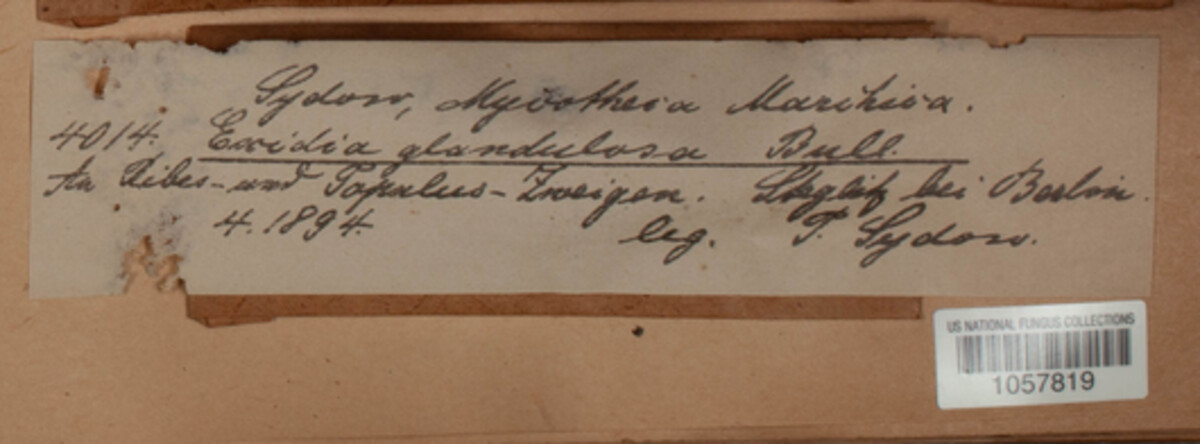 Sydow, Mycotheca Marchica.
4014. Exidia glandulosa Bull.
An Ribes- und Populus-Zweigen. Steglitz bei Berlin.
4.1894. leg. P. Sydow.
US NATIONAL FUNGUS COLLECTIONS
1057819